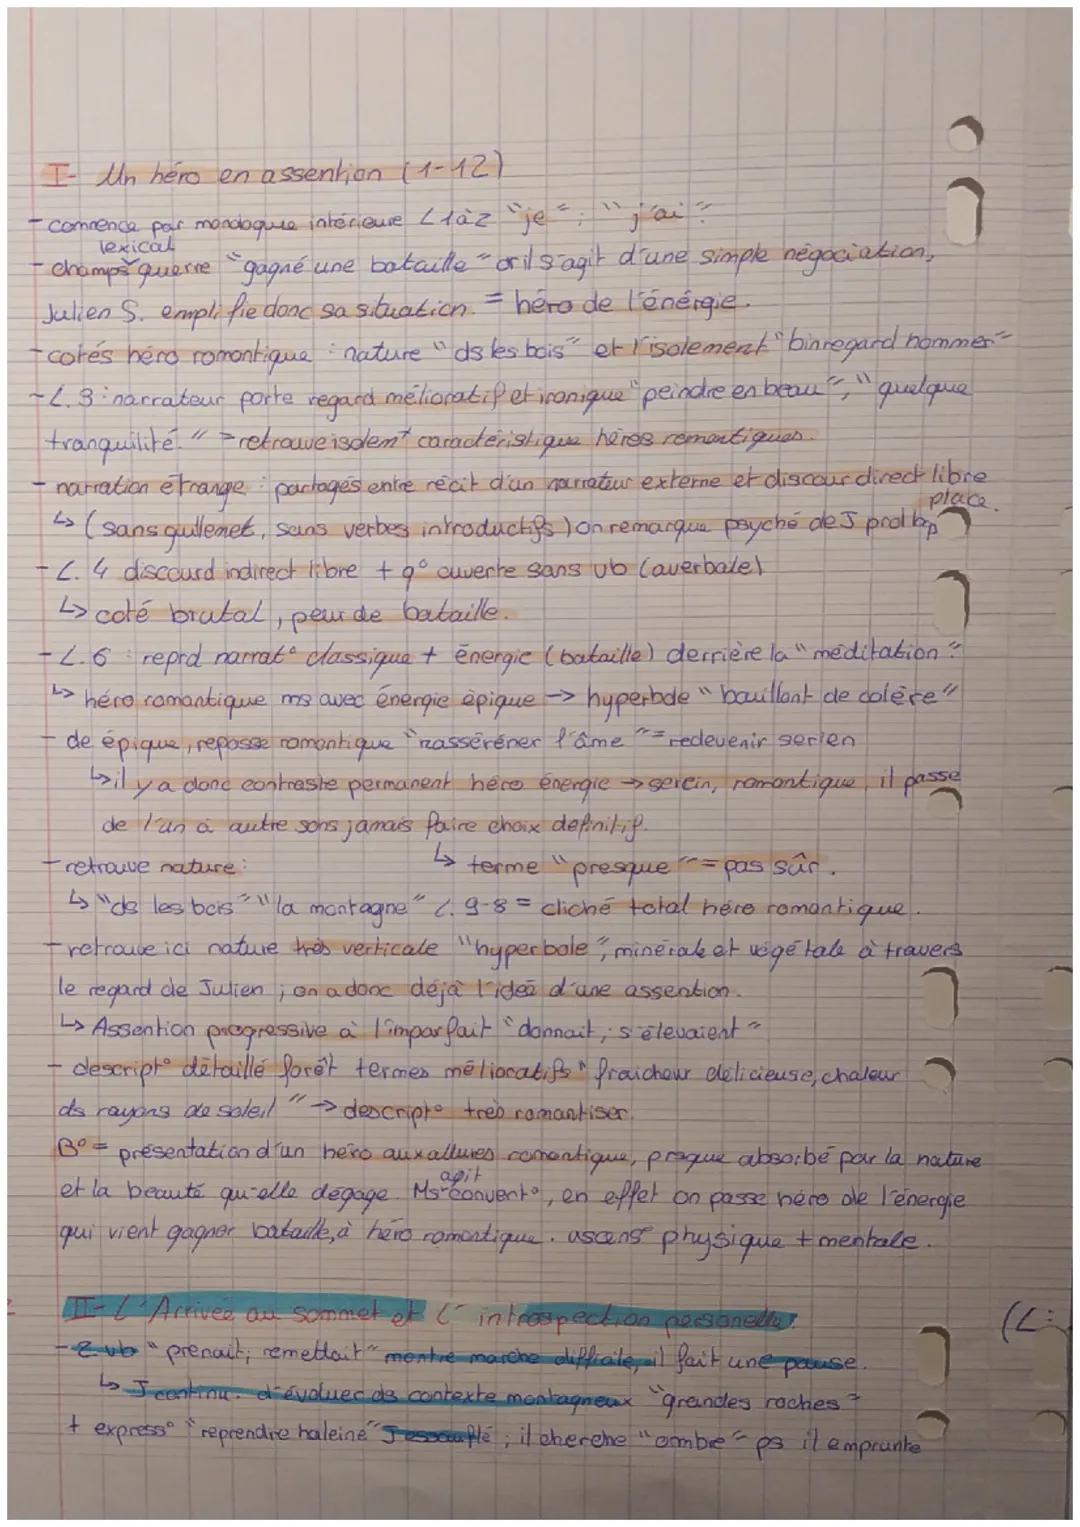 I- Un héro en assention (1-12)
- commence par mondogue intérieure L1à2 "je"; "j'ai"
lexical
- champs guerre "gagné une bataille" or il s'agit d'une simple négociation,
Julien S. emplifie donc sa situation. = héro de l'énérgie.
- cotés héro romantique : nature "ds les bois" et l'isolement "bin regard hommes"
- L.3 : narrateur porte regard mélioratif et ironique "peindre en beau", "quelque
tranquilité." => retrouve isolemt caractéristique héros romantiques.
- narration étrange : partagés entre récit d'un narrateur externe et discour direct libre
place.
↳ (sans guillemet, sans verbes introductifs) on remarque psyché de J prd bp
- L.4 discourd indirect libre + q° ouverte sans vb (averbale)
↳ coté brutal, peur de bataille.
- L.6 : reprd narrat° classique + énergie (bataille) derrière la "méditation"
↳ héro romantique ms avec énergie épique → hyperbole "bouillant de colère"
- de épique, repasse romantique "rasséréner l'âme" = redevenir serien
↳ il y a donc contraste permanent héro énergie → serein, romantique, il passe
de l'un à autre sans jamais faire choix definitif.
- retrouve nature : ↳ terme "presque" = pas sûr.
↳ "ds les bois" "la montagne" L.9-8 = cliché total héro romantique.
- retrouve ici nature très verticale "hyperbole", minérale et végétale à travers
le regard de Julien ; on a donc déjà l'idée d'une assention.
↳ Assention progressive à l'imparfait "donnait, s'élevaient"
- descript° détaillé forêt termes mélioratifs "fraicheur délicieuse, chaleur
ds rayons de soleil" → descript° très romantiser.
B° = présentation d'un héro aux allures romantique, presque absorbé par la nature
agit
et la beauté qu'elle dégage. Ms convent°, en effet on passe héro de l'énergie
qui vient gagner bataille, à héro romantique. ascens° physique + mentale.
II- L'Arrivée au sommet et l'introspection personelle: (L:
- 2 vb "prenait; remettait" montre marche difficile, il fait une pause.
↳ J continu. d'évoluer ds contexte montagneux "grandes roches"
+ express° "reprendre haleine" J essouflé ; il cherche "ombre" ps il emprunte